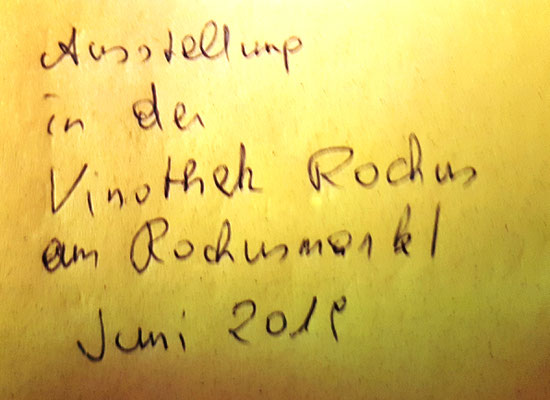 Ausstellung
in der
Vinothek Rochus
am Rochusmarkt
Juni 2019